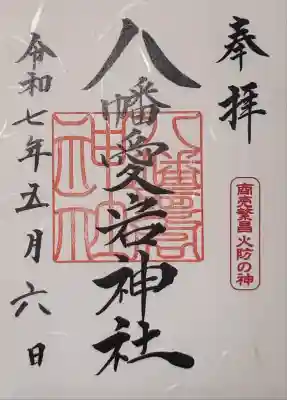 奉拝
商売繁昌 火防の神
八幡愛宕神社
令和七年五月六日